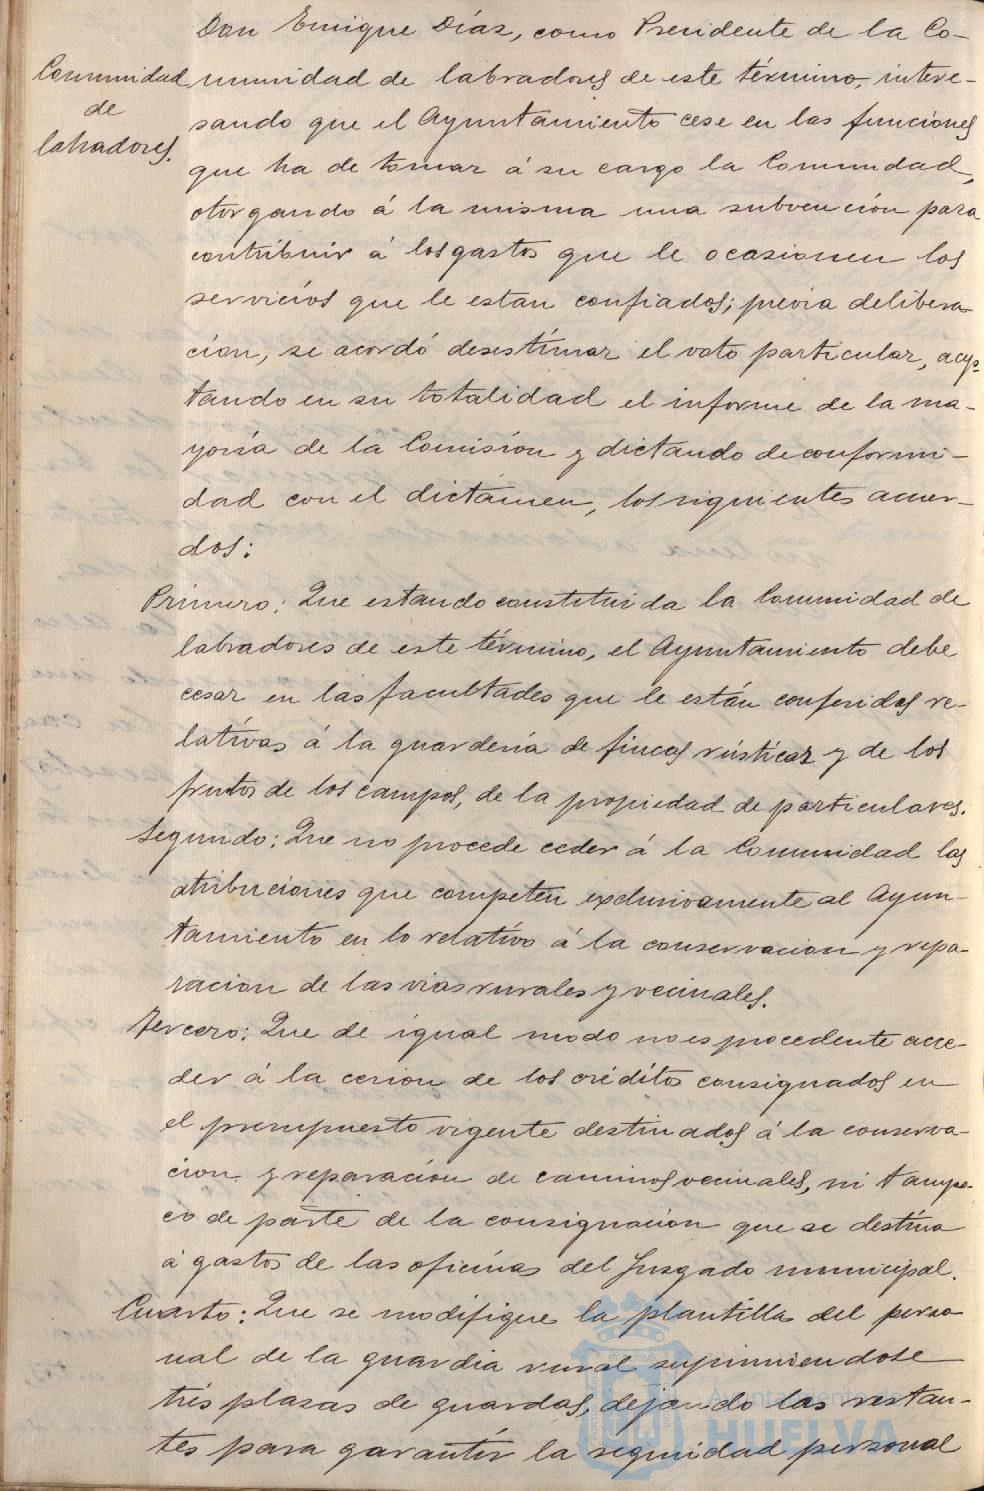 Don Enrique Díaz, como Presidente de la Co-
Comunidad
de
labradores.
munidad de labradores de este término, intere-
sando que el Ayuntamiento cese en las funciones
que ha de tomar á su cargo la Comunidad,
otorgando á la misma una subvención para
contribuir á los gastos que le ocasionen los
servicios que le estan confiados; previa delibera
cion, se acordó desestimar el voto particular, acep-
tando en su totalidad el informe de la ma-
yoría de la Comisión y dictando de conformi-
dad con el dictámen, los siguientes acuer-
dos:
Primero: Que estando constituida la Comunidad de
labradores de este término, el Ayuntamiento debe
cesar en las facultades que le están conferidas re-
lativas á la guardería de fincas rústicas y de los
frutos de los campos, de la propiedad de particulares.
Segundo: Que no procede ceder á la Comunidad las
atribuciones que competen exclusivamente al Ayun-
tamiento en lo relativo á la conservacion y repa-
racion de las vias rurales y vecinales.
Tercero: Que de igual modo no es procedente acce-
der á la cesion de los créditos consignados en
el presupuesto vigente destinados á la conserva-
cion y reparación de caminos vecinales, ni tampo-
co de parte de la consignación que se destina
á gastos de las oficinas del Juzgado municipal.
Cuarto: Que se modifique la plantilla del perso
nal de la guardia rural suprimiendose
tres plazas de guardas, dejando las restan-
tes para garantir la seguridad personal
Ayuntamiento de
HUELVA